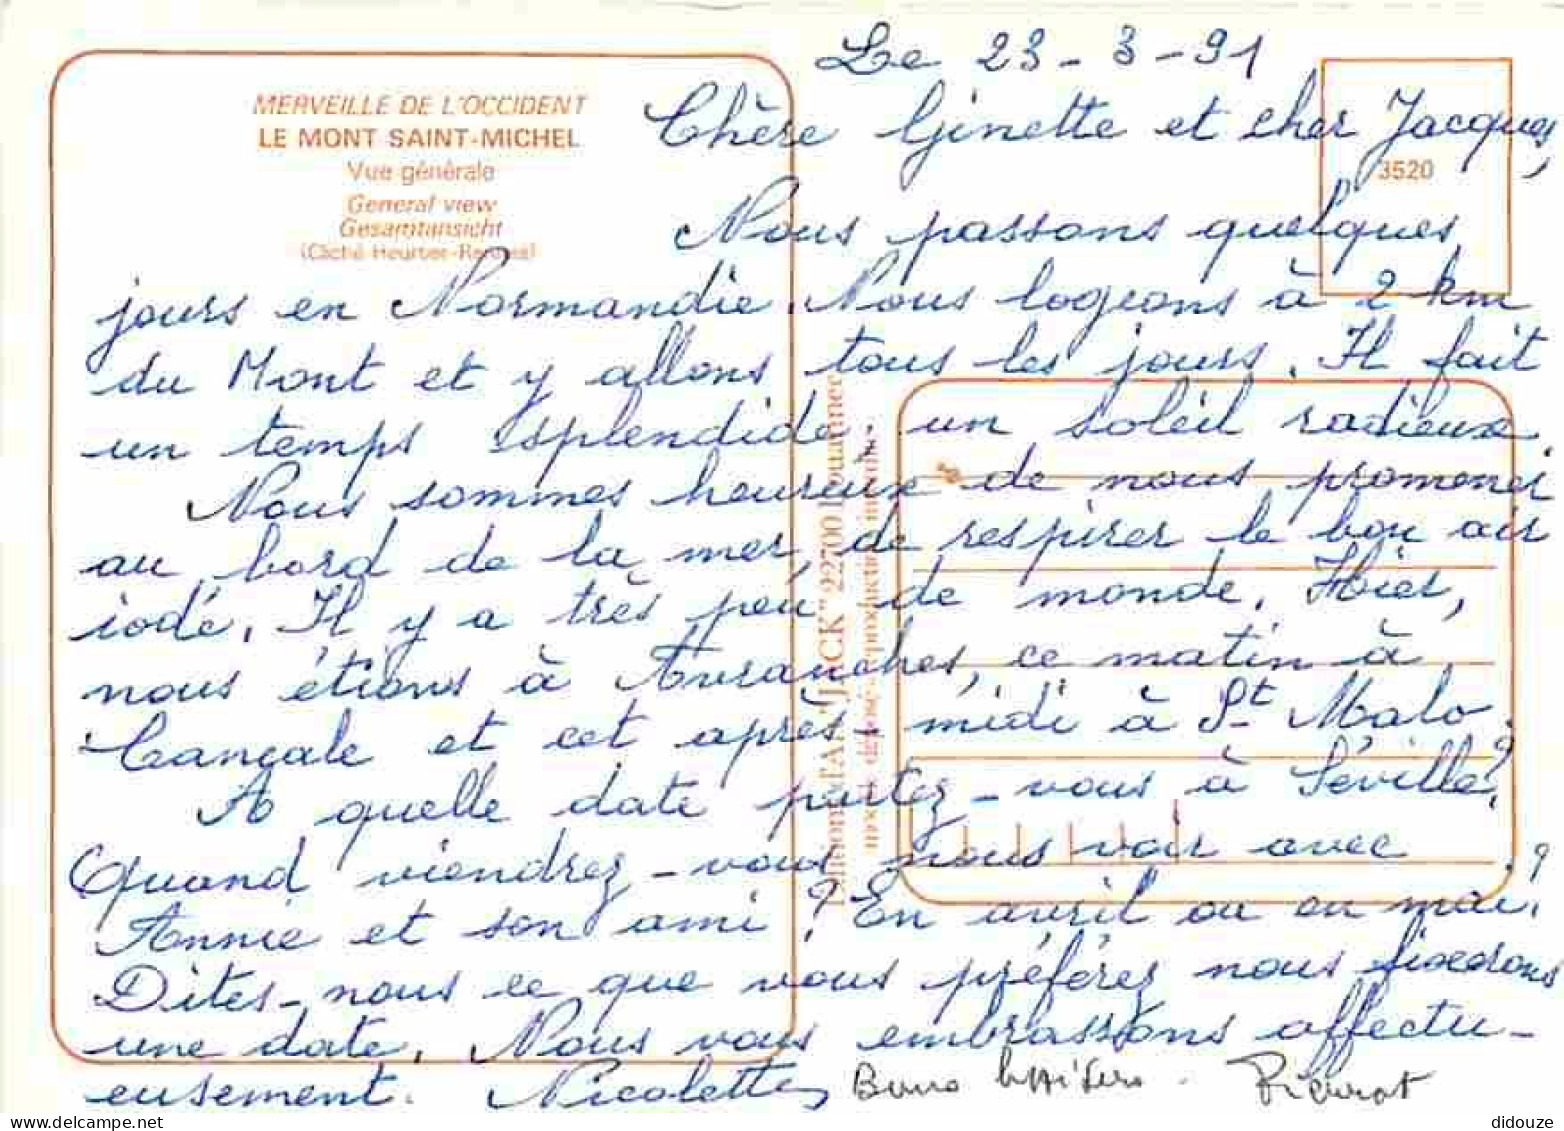 Le 23-3-91
MERVEILLE DE L'OCCIDENT
LE MONT SAINT-MICHEL
Vue générale
General view
Gesamtansicht
(Cliché Heurtier-Rennes)
3520
Chère Ginette et cher Jacques,
Nous passons quelques
jours en Normandie. Nous logeons à 2 km
du Mont et y allons tous les jours. Il fait
un temps splendide, un soleil radieux.
Nous sommes heureux de nous promener
au bord de la mer, de respirer le bon air
iodé. Il y a très peu de monde. Hier,
nous étions à Avranches, ce matin à
Cancale et cet après-midi à St Malo.
A quelle date partez-vous à Séville?
Quand viendrez-vous nous voir avec
Annie et son ami? En avril ou en mai?
Dites-nous ce que vous préférez nous fixerons
une date. Nous vous embrassons affectu-
eusement. Nicolette
Bons baisers. Pierrot
"JACK" 22700 Louannec
didouze